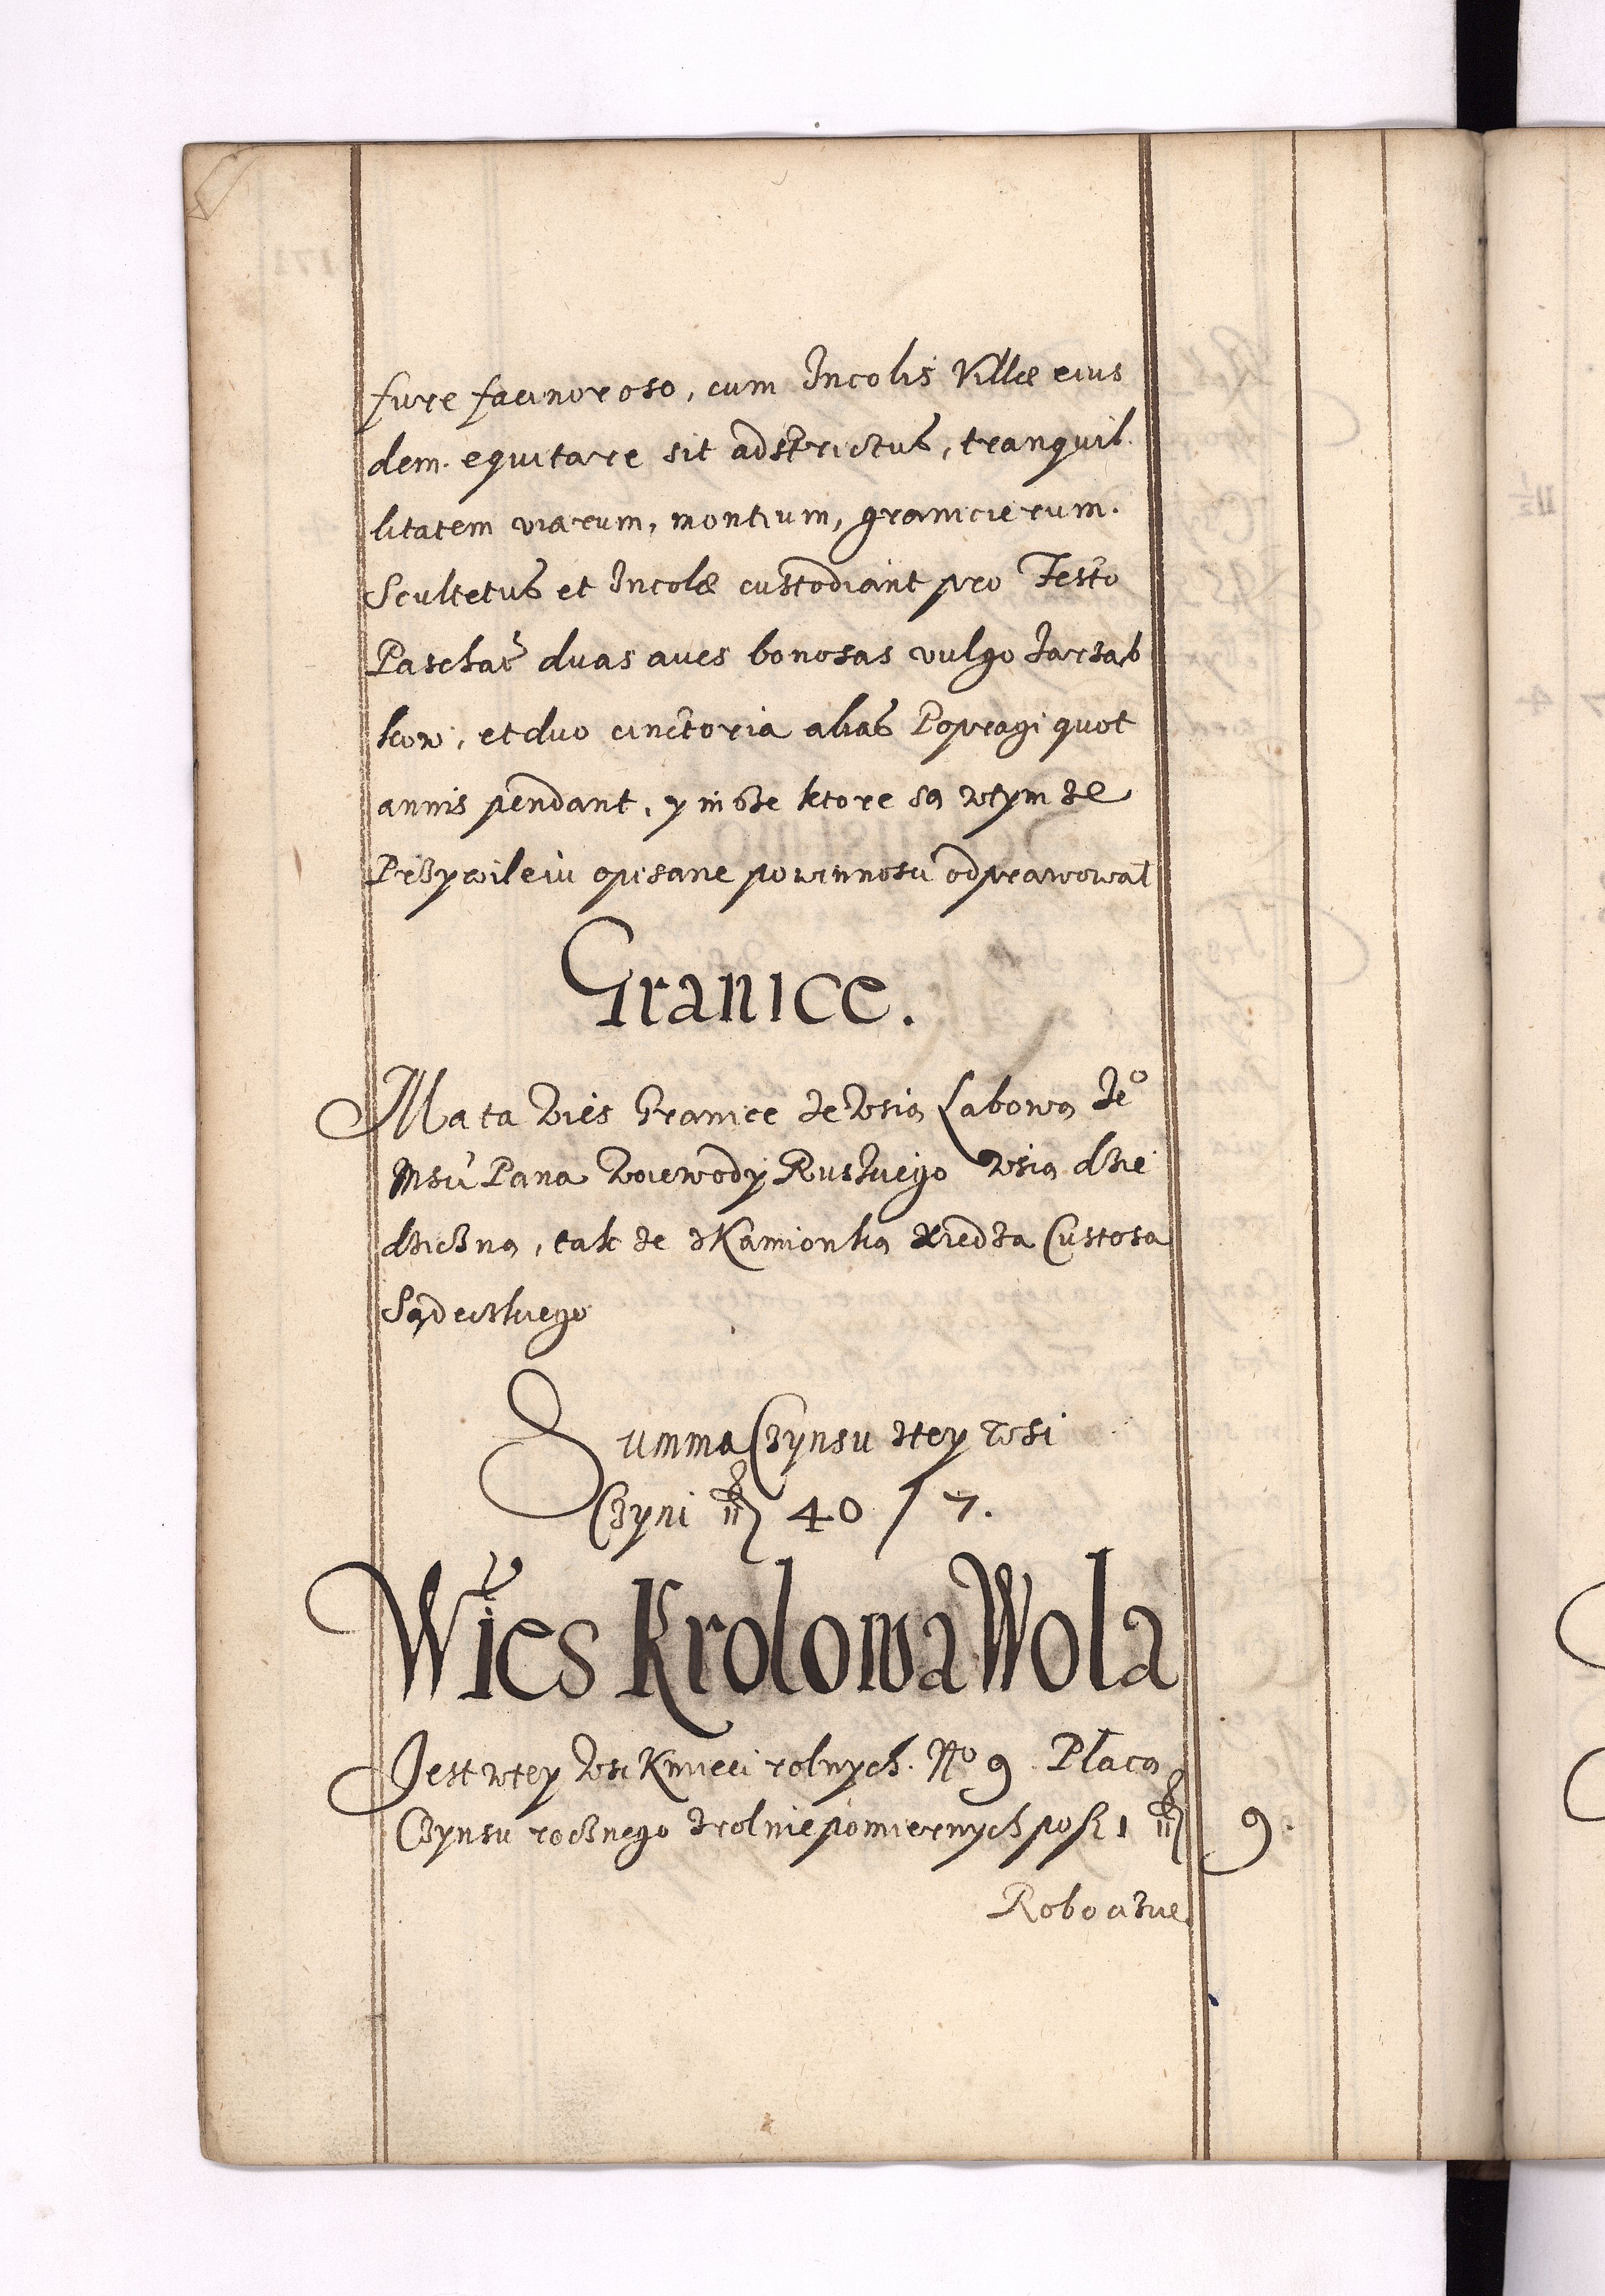 fure facinoroso, cum Incolis Villæ eius
dem. equitare sit adstrictus, tranquil
litatem viarum, montium, granicierum.
Scultetus et Incolæ custodiant pro Festo
Paschae duas aves bonosas vulgo Jarząb
kow, et duo cinctoria alias Popragi quot
annis pendant, y insze ktore są wtym że
Przywileiu opisane powinnosci odprawowat
Granice.
Ma ta Wies Granice ze Wsią Łabową Jeo
Msci Pana Woiewody Ruskiego wsią dzie
dziczną, tak ze zKamionką xiedza Custosa
Sądeczkiego
Summa Czynsu ztey wsi
Czyni 40 / 7.
Wies Krolowa Wola
Jest wtey Wsi Kmieci rolnych. No 9. Płacą
Czynsu rocznego zrolnie pomiernych po 1 9.
Robocizne